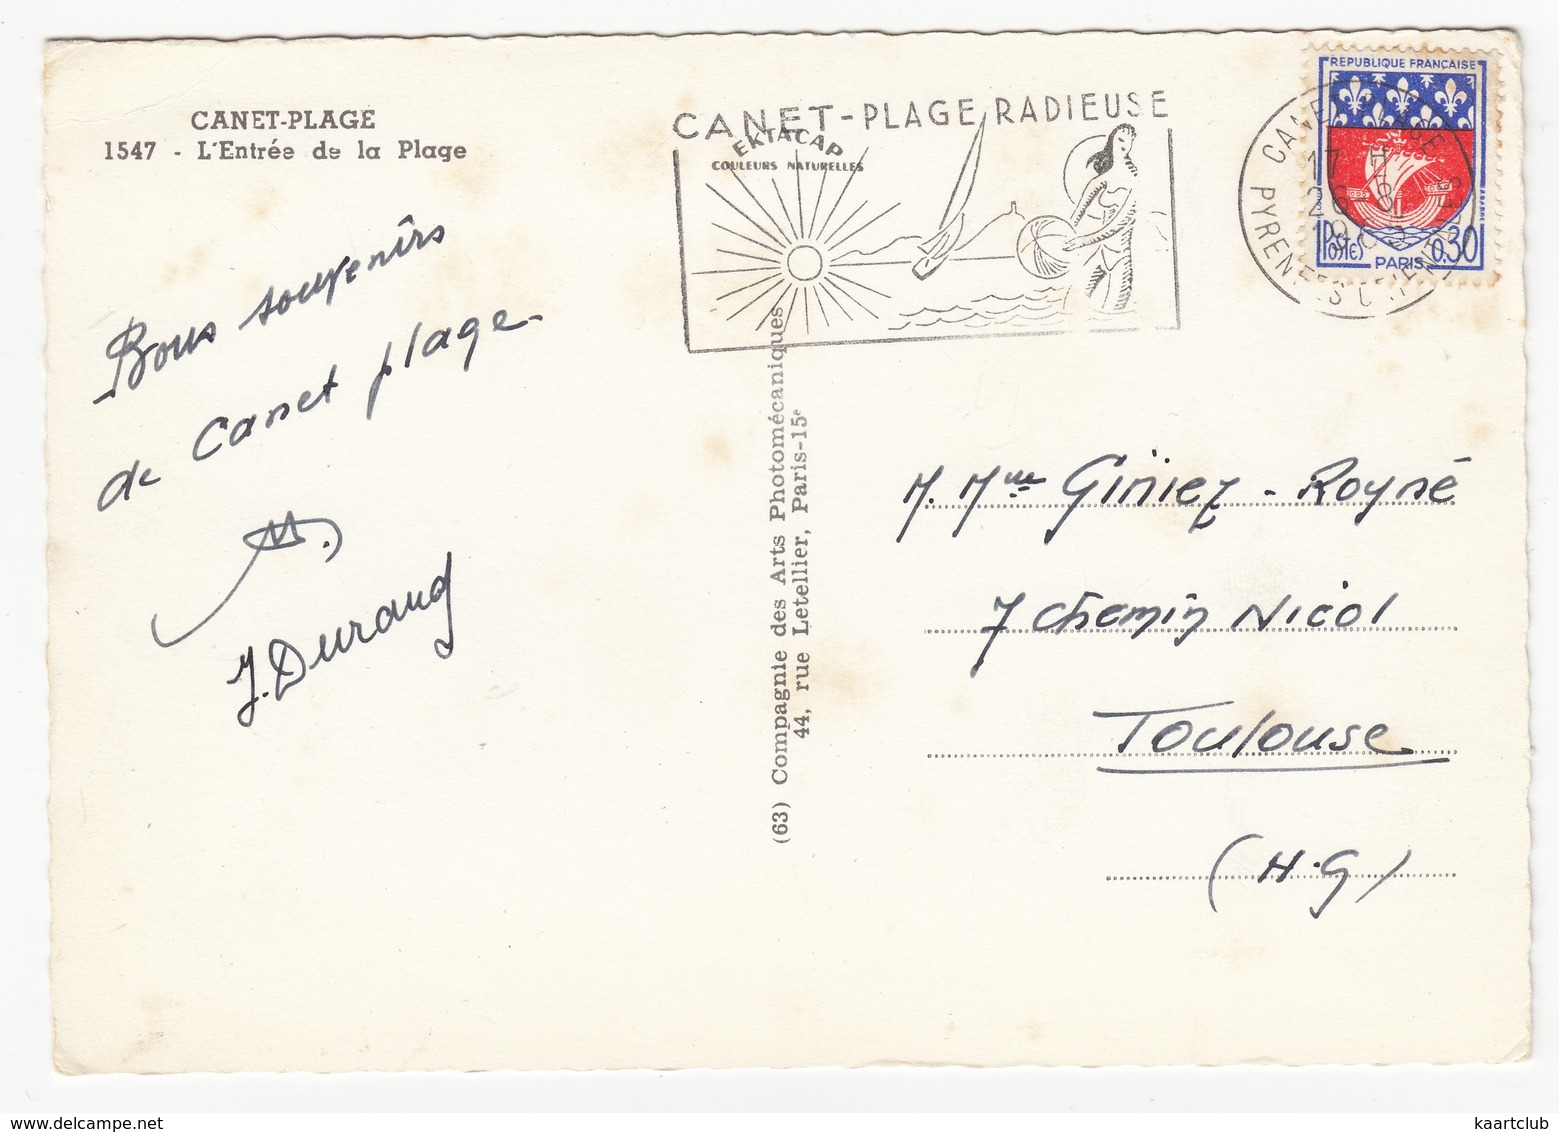 CANET-PLAGE
1547 - L'Entrée de la Plage
Bons souvenirs
de Canet plage-
J. Durand
(63) Compagnie des Arts Photomécaniques
44, rue Letellier, Paris-15e
CANET-PLAGE RADIEUSE
EKTACAP
COULEURS NATURELLES
CANET PLAGE
17 H
26
PYRENEES ORIENTALES
REPUBLIQUE FRANÇAISE
POSTES
0,30
PARIS
M. Mme Giniez - Royné
7 chemin Nicol
Toulouse
(H.G)
kaartclub